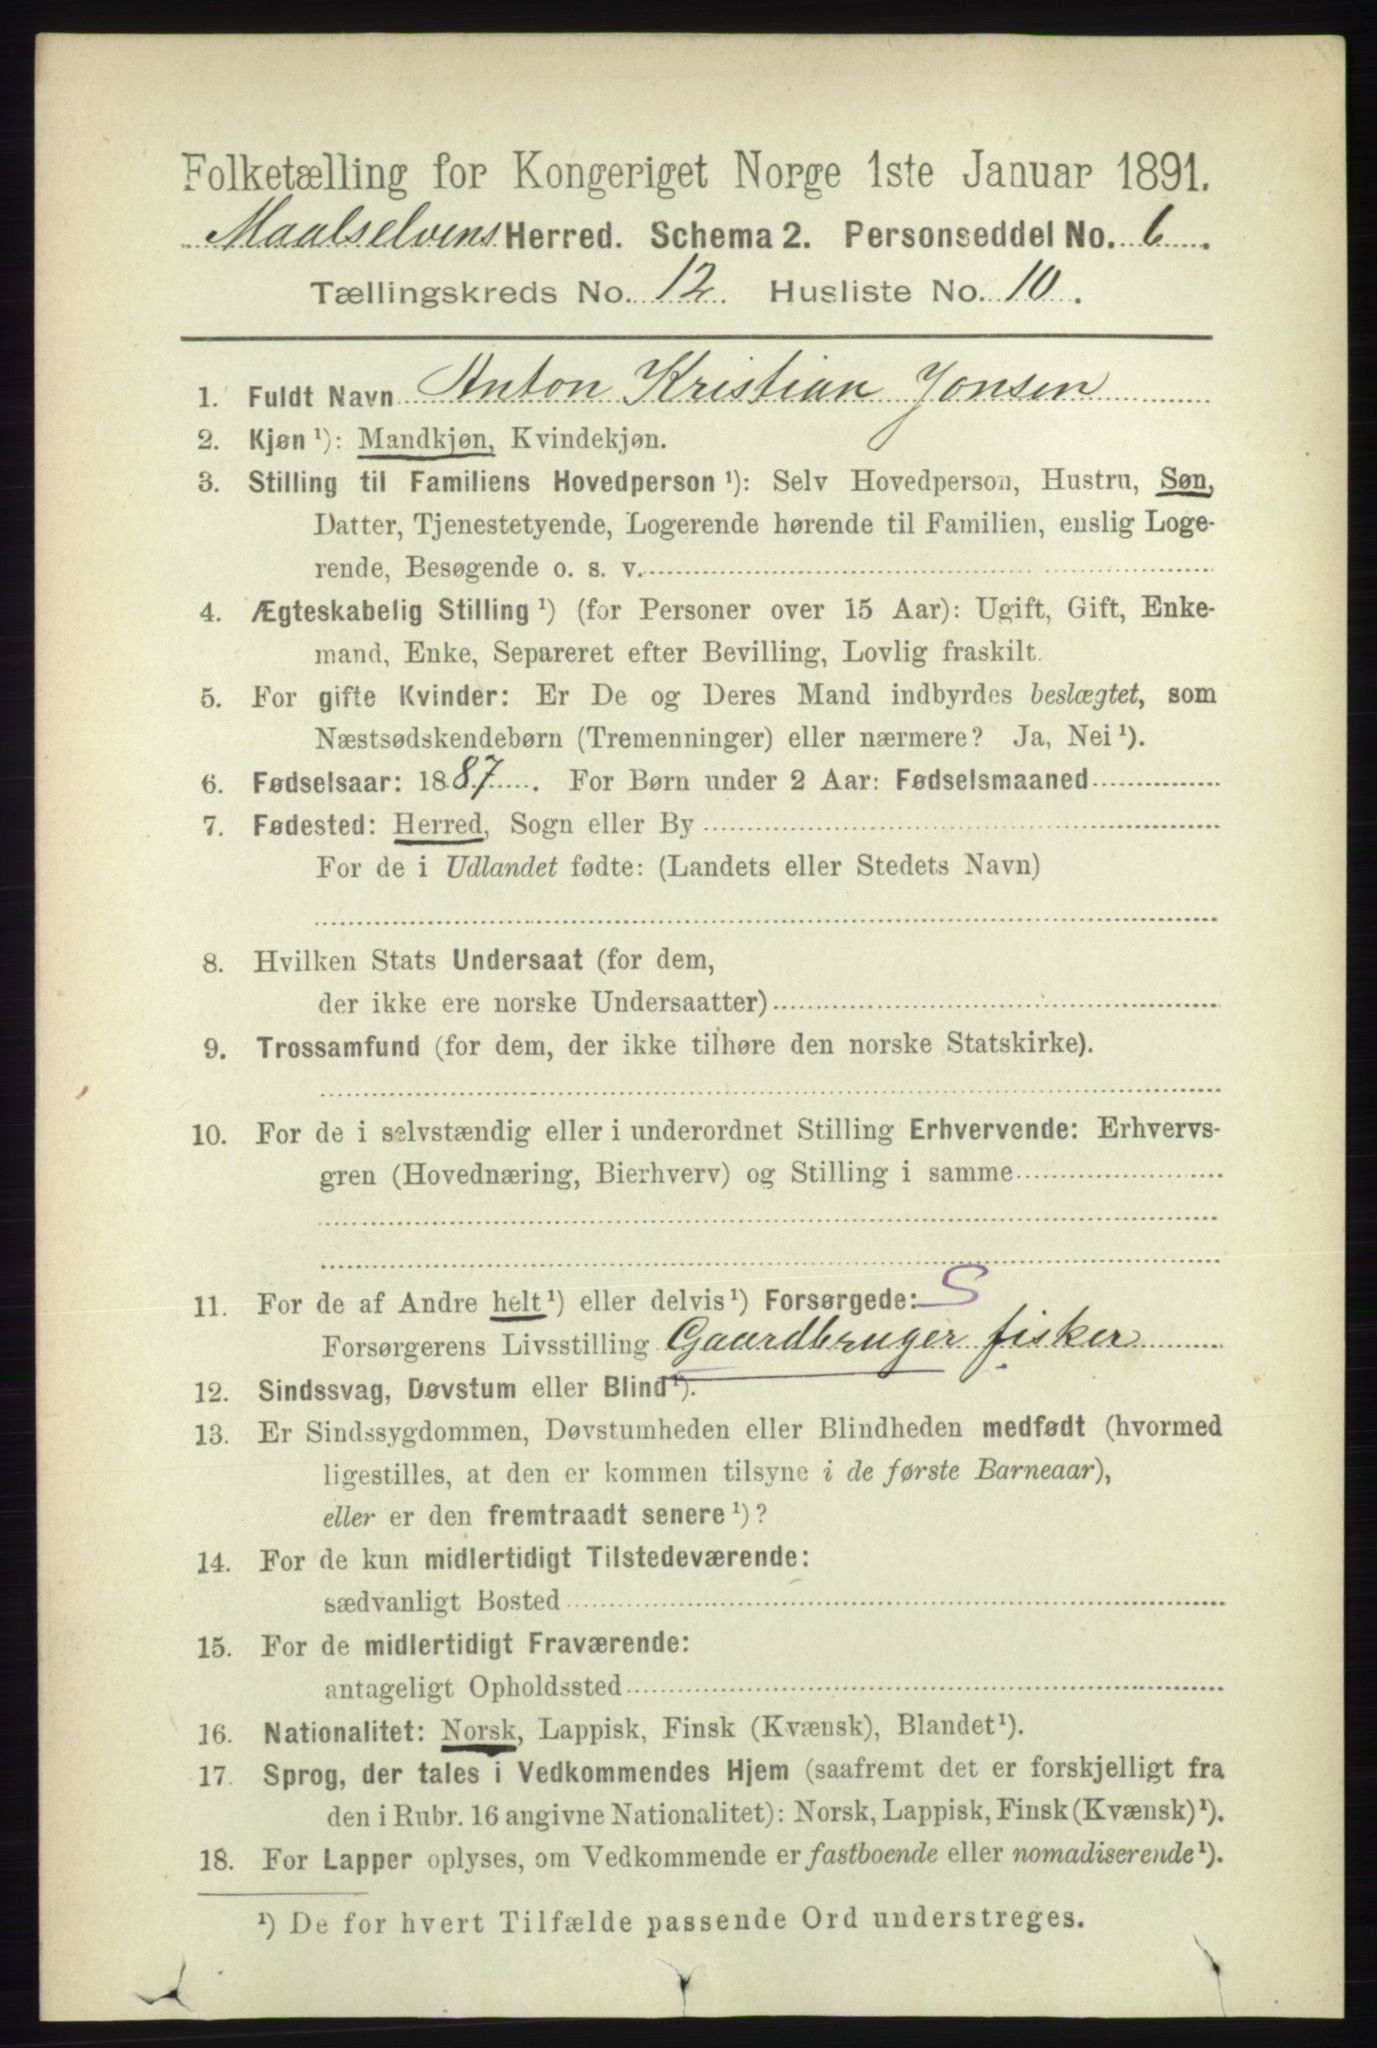 Folketælling for Kongeriget Norge 1ste Januar 1891.
Maalselvens Herred. Schema 2. Personseddel No. 6.
Tællingskreds No. 12. Husliste No. 10.
1. Fuldt Navn Anton Kristian Jonsen
2. Kjøn ¹): Mandkjøn, Kvindekjøn.
3. Stilling til Familiens Hovedperson ¹): Selv Hovedperson, Hustru, Søn,
Datter, Tjenestetyende, Logerende hørende til Familien, enslig Loge-
rende, Besøgende o. s. v.
4. Ægteskabelig Stilling ¹) (for Personer over 15 Aar): Ugift, Gift, Enke-
mand, Enke, Separeret efter Bevilling, Lovlig fraskilt.
5. For gifte Kvinder: Er De og Deres Mand indbyrdes beslægtet, som
Næstsødskendebørn (Tremenninger) eller nærmere? Ja, Nei ¹).
6. Fødselsaar: 1887. For Børn under 2 Aar: Fødselsmaaned
7. Fødested: Herred, Sogn eller By
For de i Udlandet fødte: (Landets eller Stedets Navn)
8. Hvilken Stats Undersaat (for dem,
der ikke ere norske Undersaatter)
9. Trossamfund (for dem, der ikke tilhøre den norske Statskirke).
10. For de i selvstændig eller i underordnet Stilling Erhvervende: Erhvervs-
gren (Hovednæring, Bierhverv) og Stilling i samme
11. For de af Andre helt ¹) eller delvis ¹) Forsørgede: S
Forsørgerens Livsstilling Gaardbruger fisker
12. Sindssvag, Døvstum eller Blind ¹).
13. Er Sindssygdommen, Døvstumheden eller Blindheden medfødt (hvormed
ligestilles, at den er kommen tilsyne i de første Barneaar),
eller er den fremtraadt senere ¹)?
14. For de kun midlertidigt Tilstedeværende:
sædvanligt Bosted
15. For de midlertidigt Fraværende:
antageligt Opholdssted
16. Nationalitet: Norsk, Lappisk, Finsk (Kvænsk), Blandet ¹).
17. Sprog, der tales i Vedkommendes Hjem (saafremt det er forskjelligt fra
den i Rubr. 16 angivne Nationalitet): Norsk, Lappisk, Finsk (Kvænsk) ¹).
18. For Lapper oplyses, om Vedkommende er fastboende eller nomadiserende ¹).
¹) De for hvert Tilfælde passende Ord understreges.